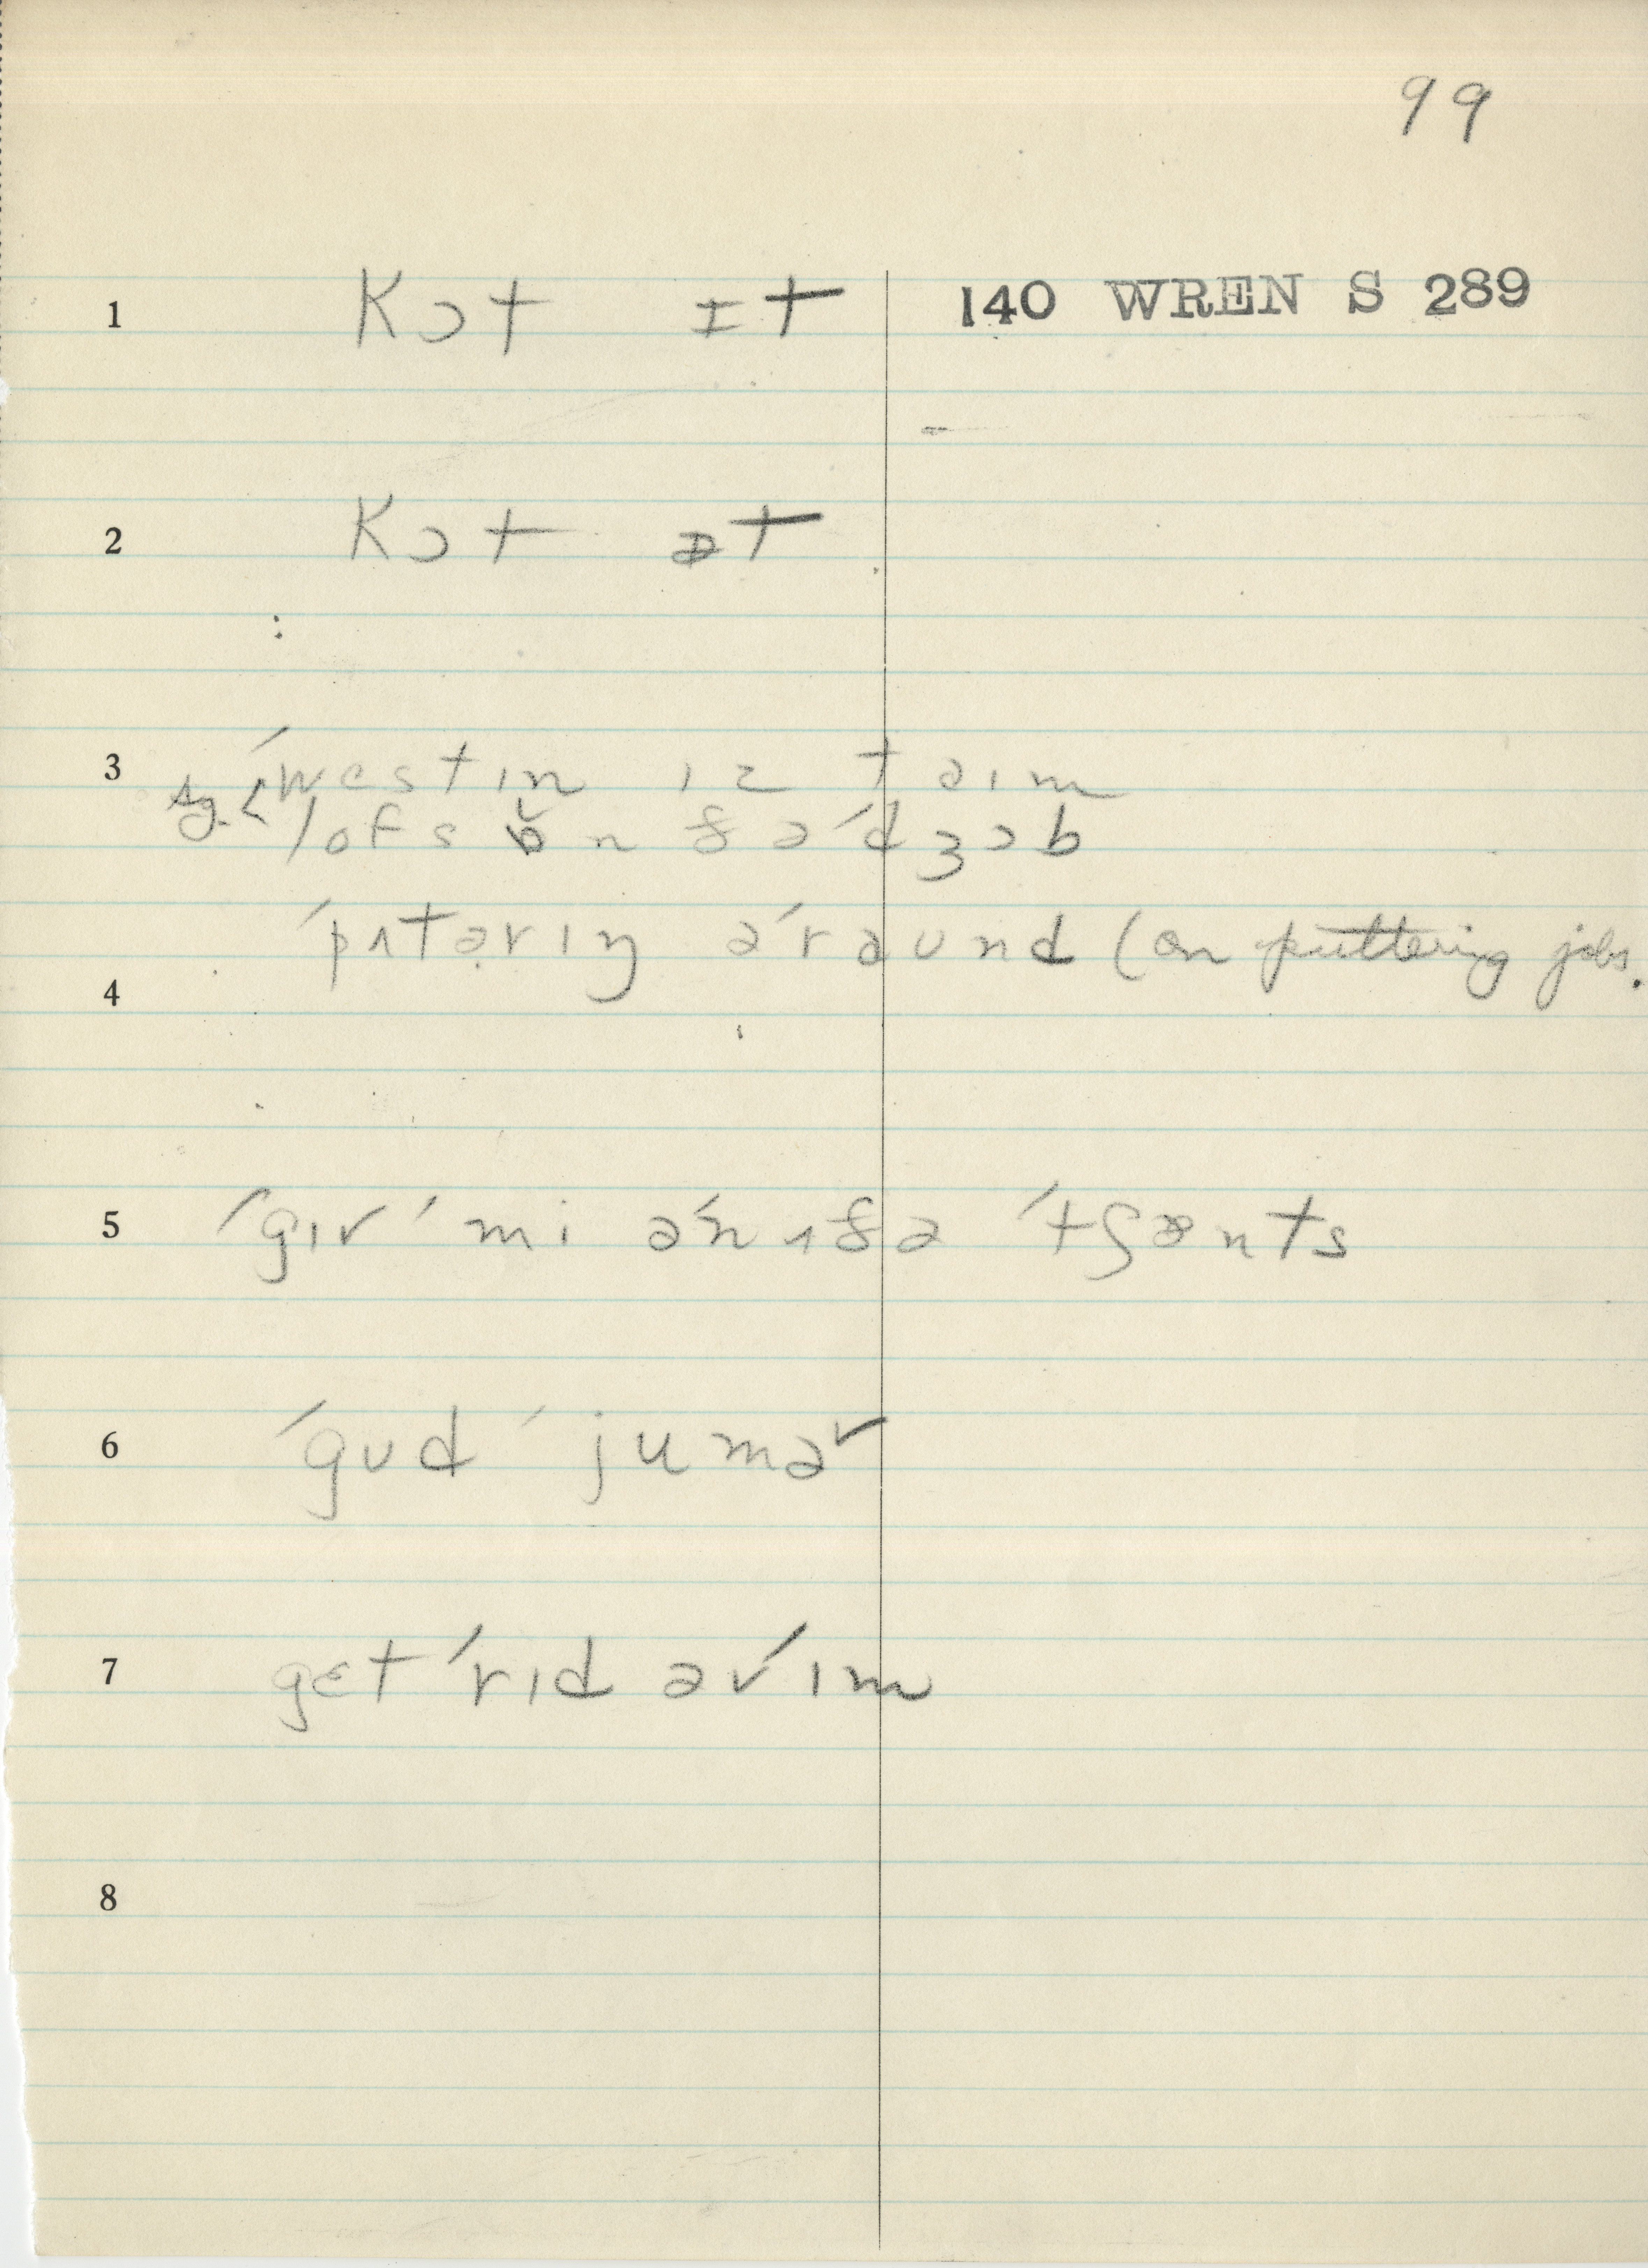 99
1 kɔt ɪt 140 WREN S 289
2 kɔt ət
3 ˈwestɪn ɪz taɪm
sg. < lofs ɒ̌ n f ə ˈdʒɔb
ˈpʌtərɪŋ əˈraʊnd (on puttering jobs.
4
5 ˈgɪv ˈmi əˈnʌfə ˈtʃænts
6 ˈgʊd ˈjumər
7 gɛt ˈrɪd əvˈɪm
8